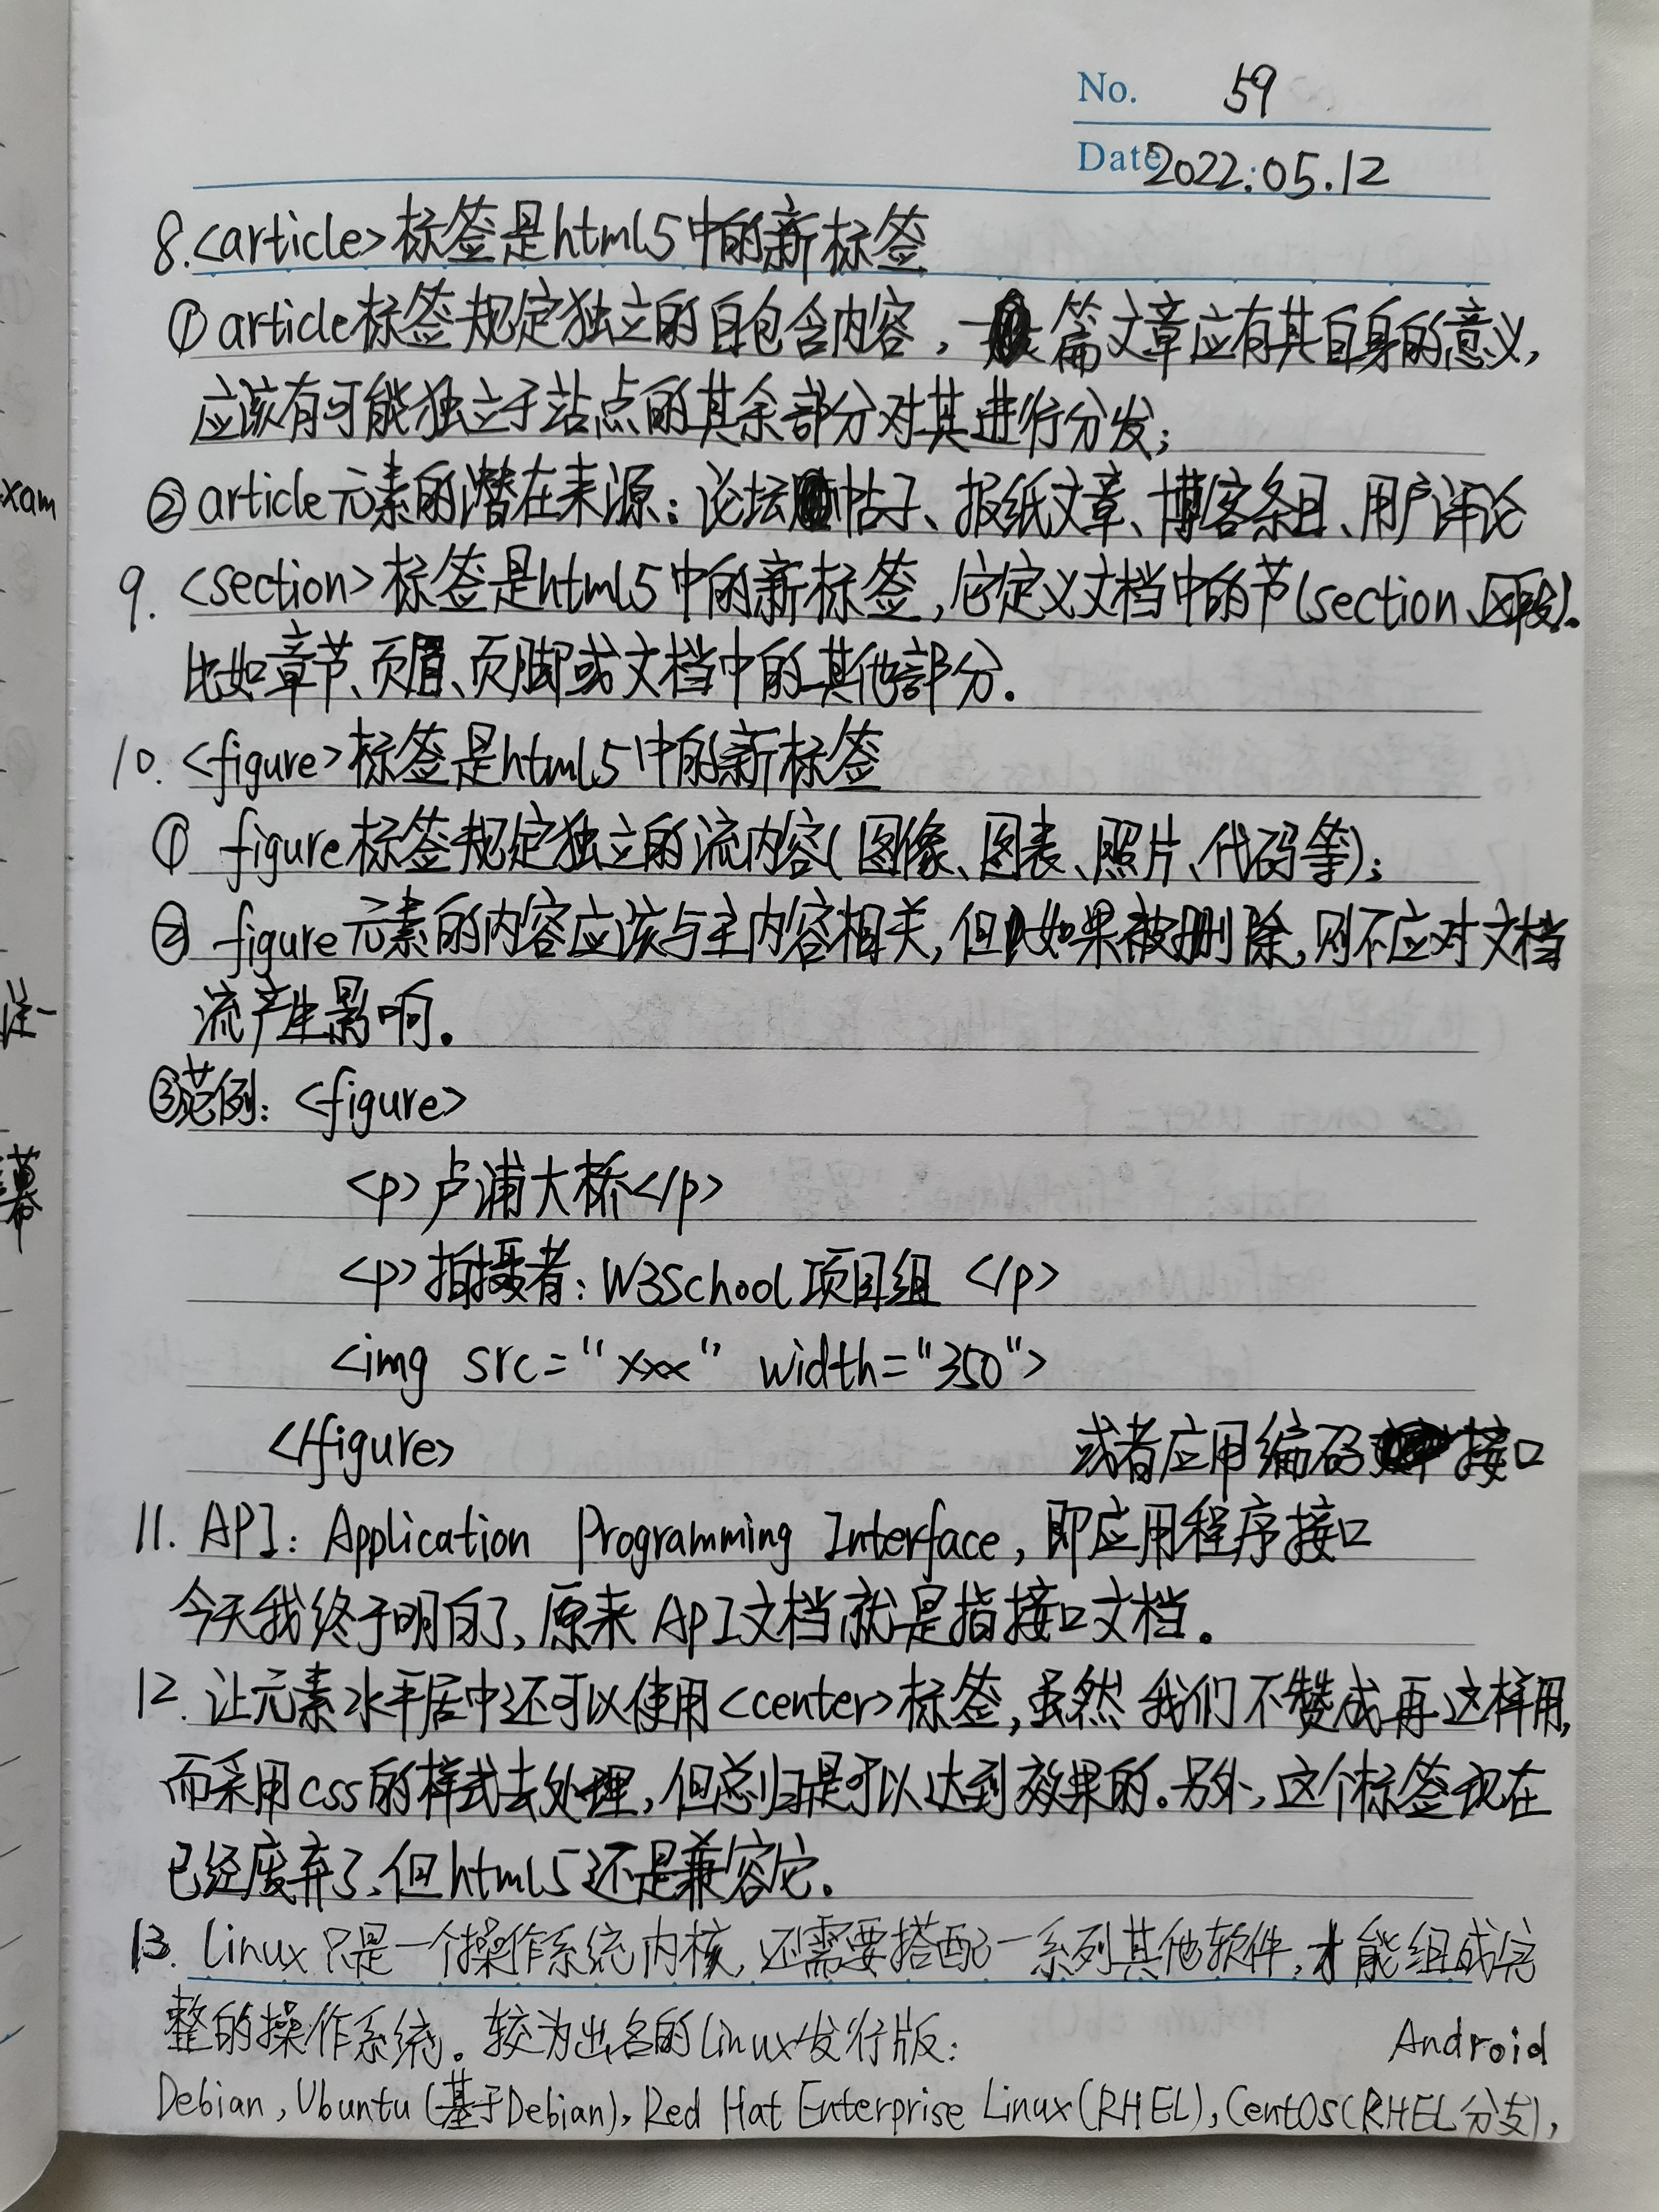 No. 59
Date 2022.05.12
8.<article>标签是html5中的新标签
①article标签规定独立的自包含内容,一篇文章应有其自身的意义,
应该有可能独立于站点的其余部分对其进行分发;
②article元素的潜在来源:论坛帖子、报纸文章、博客条目、用户评论
9.<section>标签是html5中的新标签,它定义文档中的节(section、区段).
比如章节、页眉、页脚或文档中的其他部分.
10.<figure>标签是html5中的新标签
① figure标签规定独立的流内容(图像、图表、照片、代码等);
② figure元素的内容应该与主内容相关,但如果被删除,则不应对文档
流产生影响。
③范例:<figure>
<p>卢浦大桥</p>
<p>拍摄者:W3School项目组 </p>
<img src="xxx" width="350">
</figure>
或者应用编码接口
11. API: Application Programming Interface,即应用程序接口
今天我终于明白了,原来API文档就是指接口文档。
12. 让元素水平居中还可以使用<center>标签,虽然我们不赞成再这样用,
而采用css的样式去处理,但总归是可以达到效果的.另外,这个标签现在
已经废弃了,但html5还是兼容它.
13. linux只是一个操作系统内核,还需要搭配一系列其他软件,才能组成完
整的操作系统。较为出名的linux发行版:
Android
Debian,Ubuntu(基于Debian),Red Hat Enterprise Linux(RHEL),CentOS(RHEL分支),
xam
幕